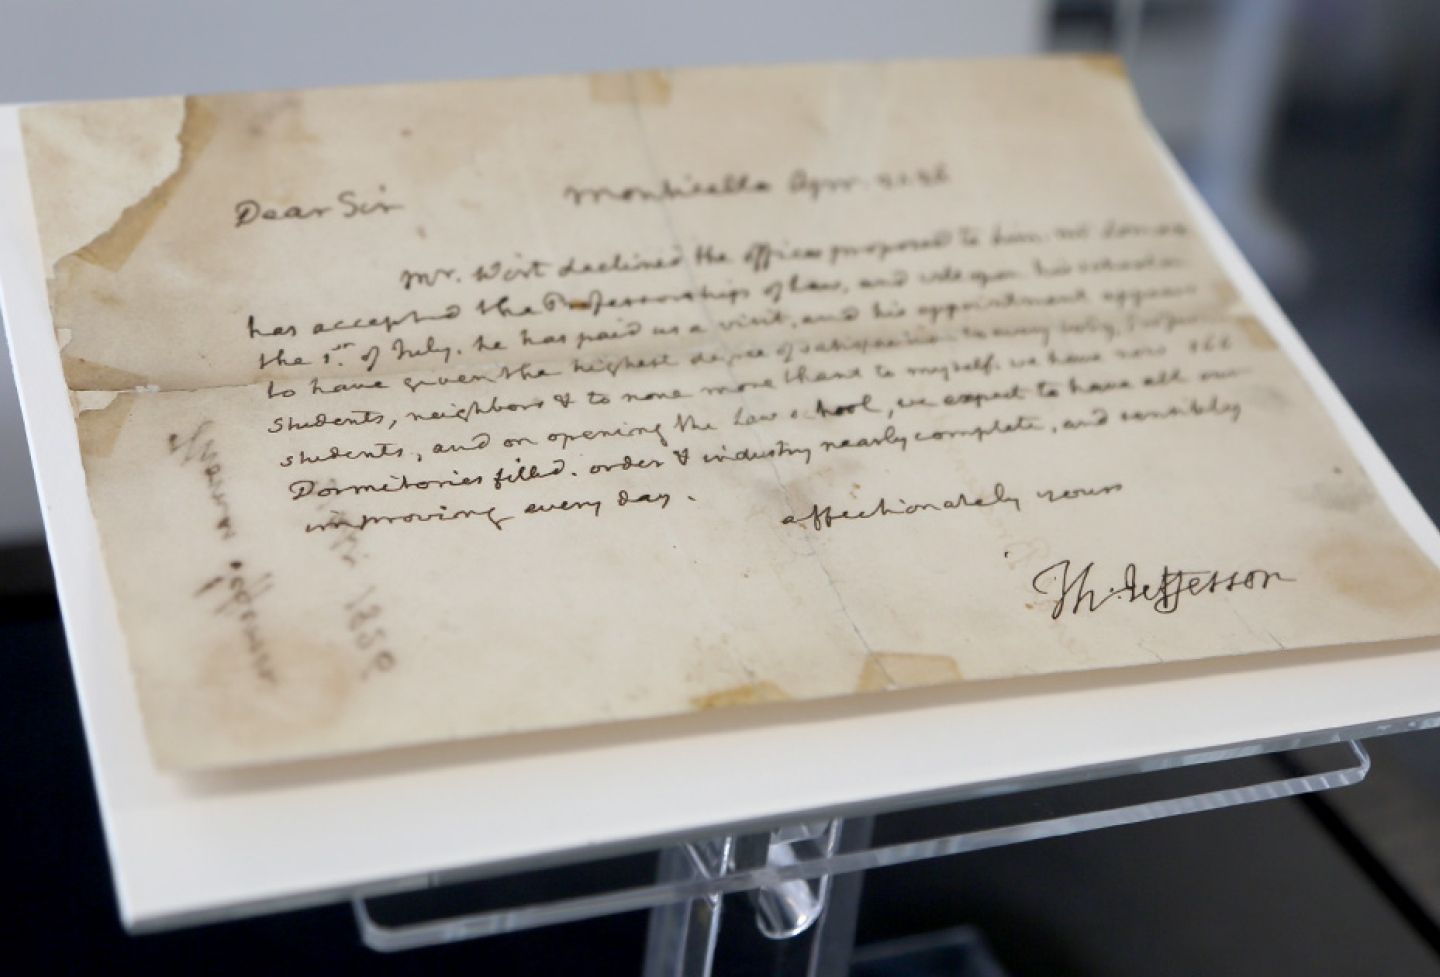 Dear Sir Monticello Apr. 21. 26
Mr. Wirt declined the offices proposed to him. Mr Lomax
has accepted the Professorship of Law, and will open his school on
the 1st of July. he has paid us a visit, and his appointment appears
to have given the highest degree of satisfaction to every body,
students, neighbors & to none more than to myself. we have now 166
students, and on opening the Law school, we expect to have all our
Dormitories filled. order & industry nearly complete, and sensibly
improving every day.
affectionately yours
Th. Jefferson
1850